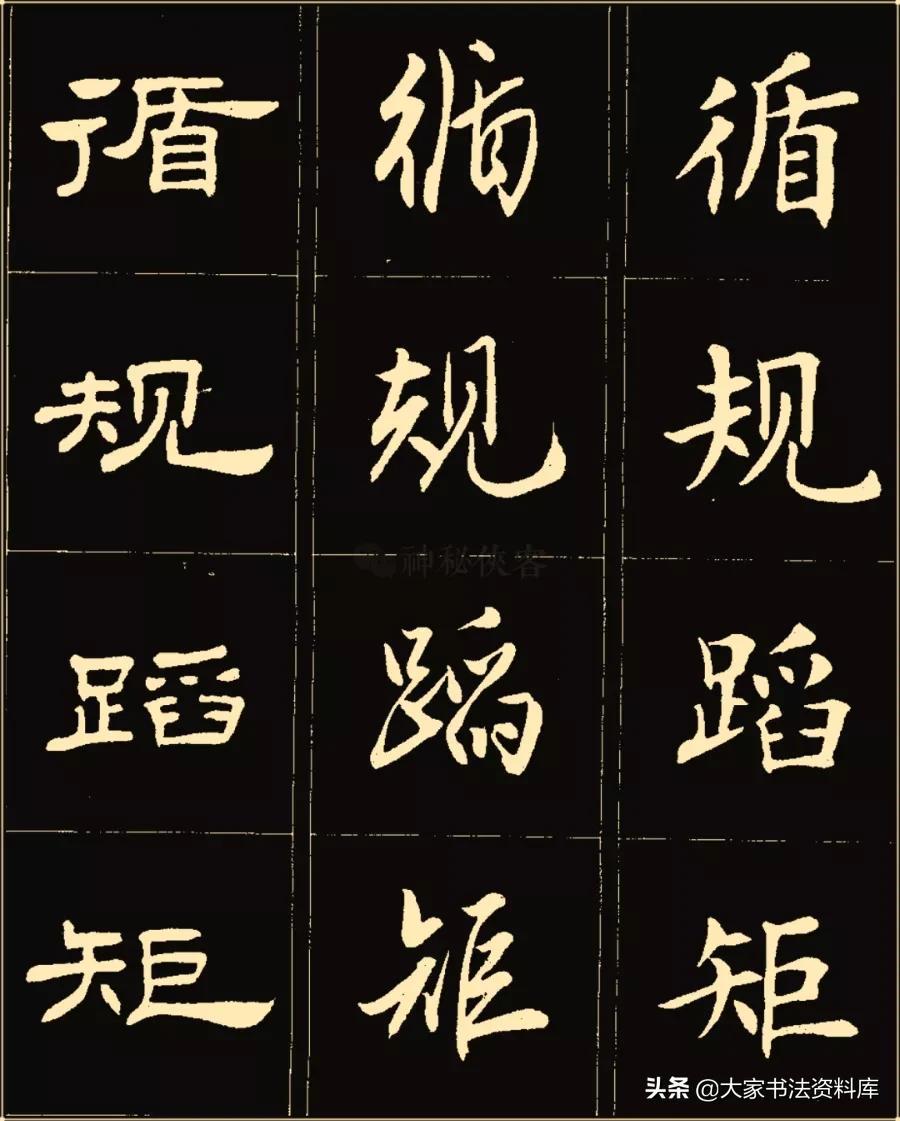 循 循 循
规 规 规
蹈 蹈 蹈
矩 矩 矩
神秘侠客
头条 @大家书法资料库